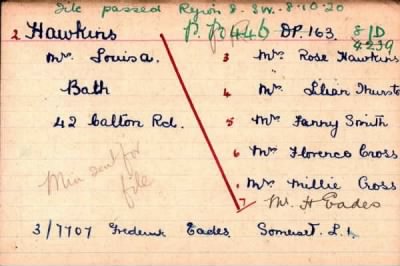 File passed Region 8. SW. 8.10.20
2 Hawkins
P.P. 446 DP.163. 8/D 4239
Mrs Louisa.
Bath
42 Calton Rd.
3 Mrs Rose Hawkins
4 Mrs Lilian Thurston
5 Mrs Fanny Smith
6 Mrs Florence Cross
1 Mrs Millie Cross
7 Mr. H Eades
Min sent for file
3/7707 Frederick Eades. Somerset. L.I.